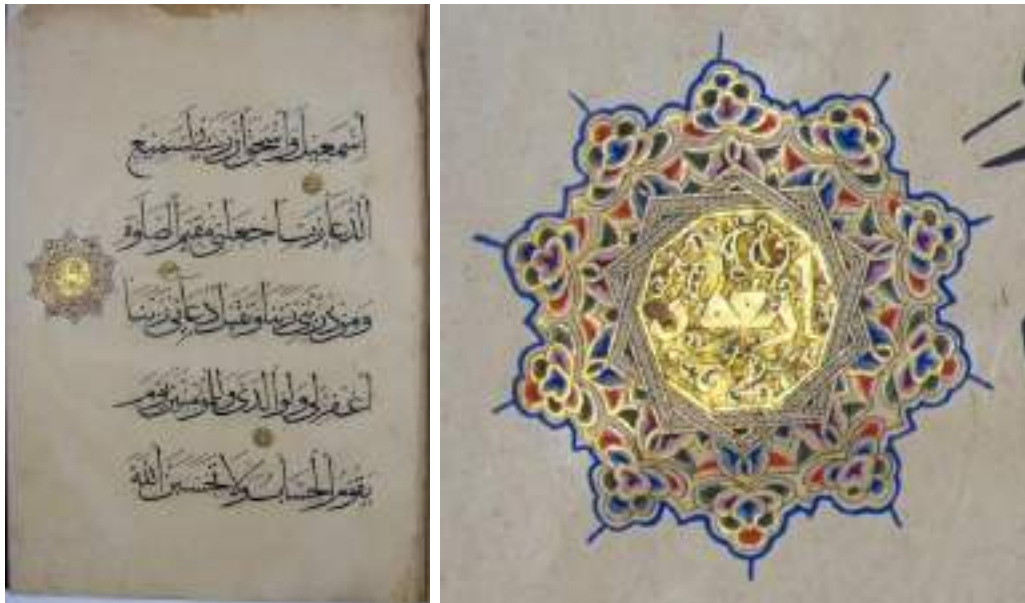 اسمعيل واسحق ان ربي لسميع
الدعاء رب اجعلني مقيم الصلوة
ومن ذريتي ربنا وتقبل دعائي ربنا
اغفر لي ولوالدي وللمؤمنين يوم
يقوم الحساب ولا تحسبن الله